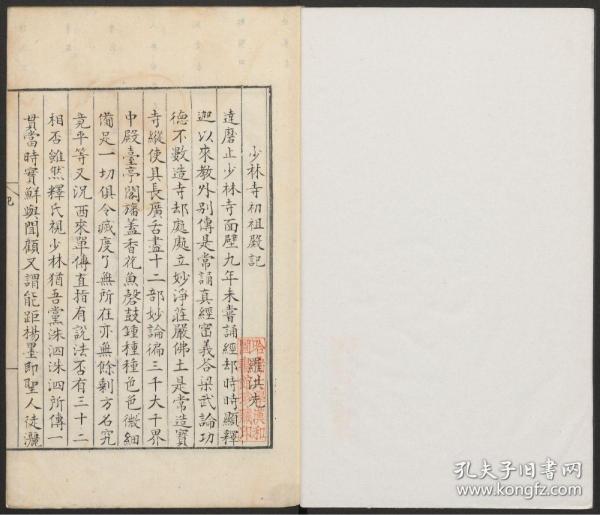 少林寺初祖殿記
羅洪先
達磨止少林寺面壁九年未嘗誦經却時時顯釋
迦以來教外別傳是常誦真經密義答梁武論功
德不數造寺却處處立妙淨莊嚴佛土是常造寶
寺縱使具長廣舌盡十二部妙論徧三千大千界
中殿臺亭閣旛蓋香花魚磬鼓鍾種種色色微細
備足一切俱令滅度了無所在亦無餘剩方名究
竟平等又況西來單傳直指有說法否有三十二
相否雖然釋氏視少林猶吾黨洙泗洙泗所傳一
貫當時實鮮與聞顧又謂能距楊墨即聖人徒灑
記
孔夫子旧书网
www.kongfz.com